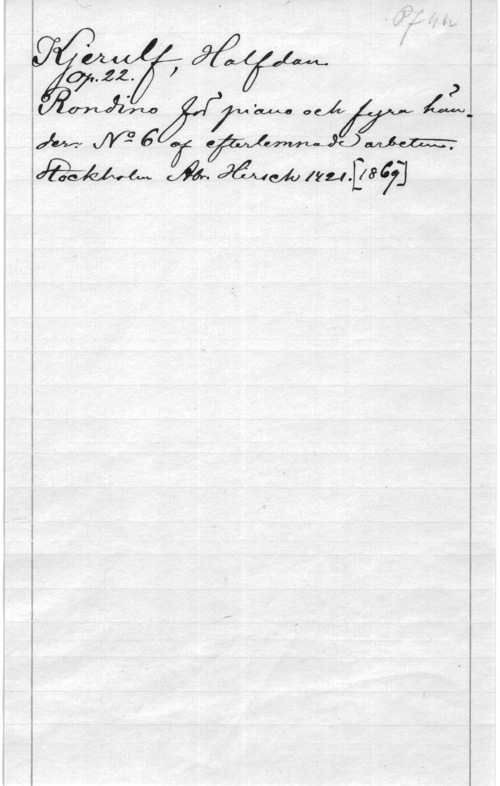 Pf 4h
Kjerulf, Halfdan
Op. 22.
Rondino för piano och fyra hän-
der. Nº 6 af efterlemnade arbeten.
Stockholm Abr. Hirsch 1421. [1869]